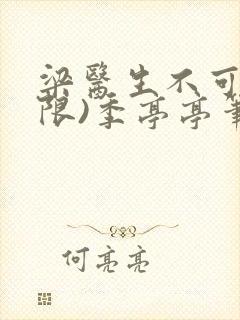 梁醫生不可
限)季亭亭筆
何亮亮